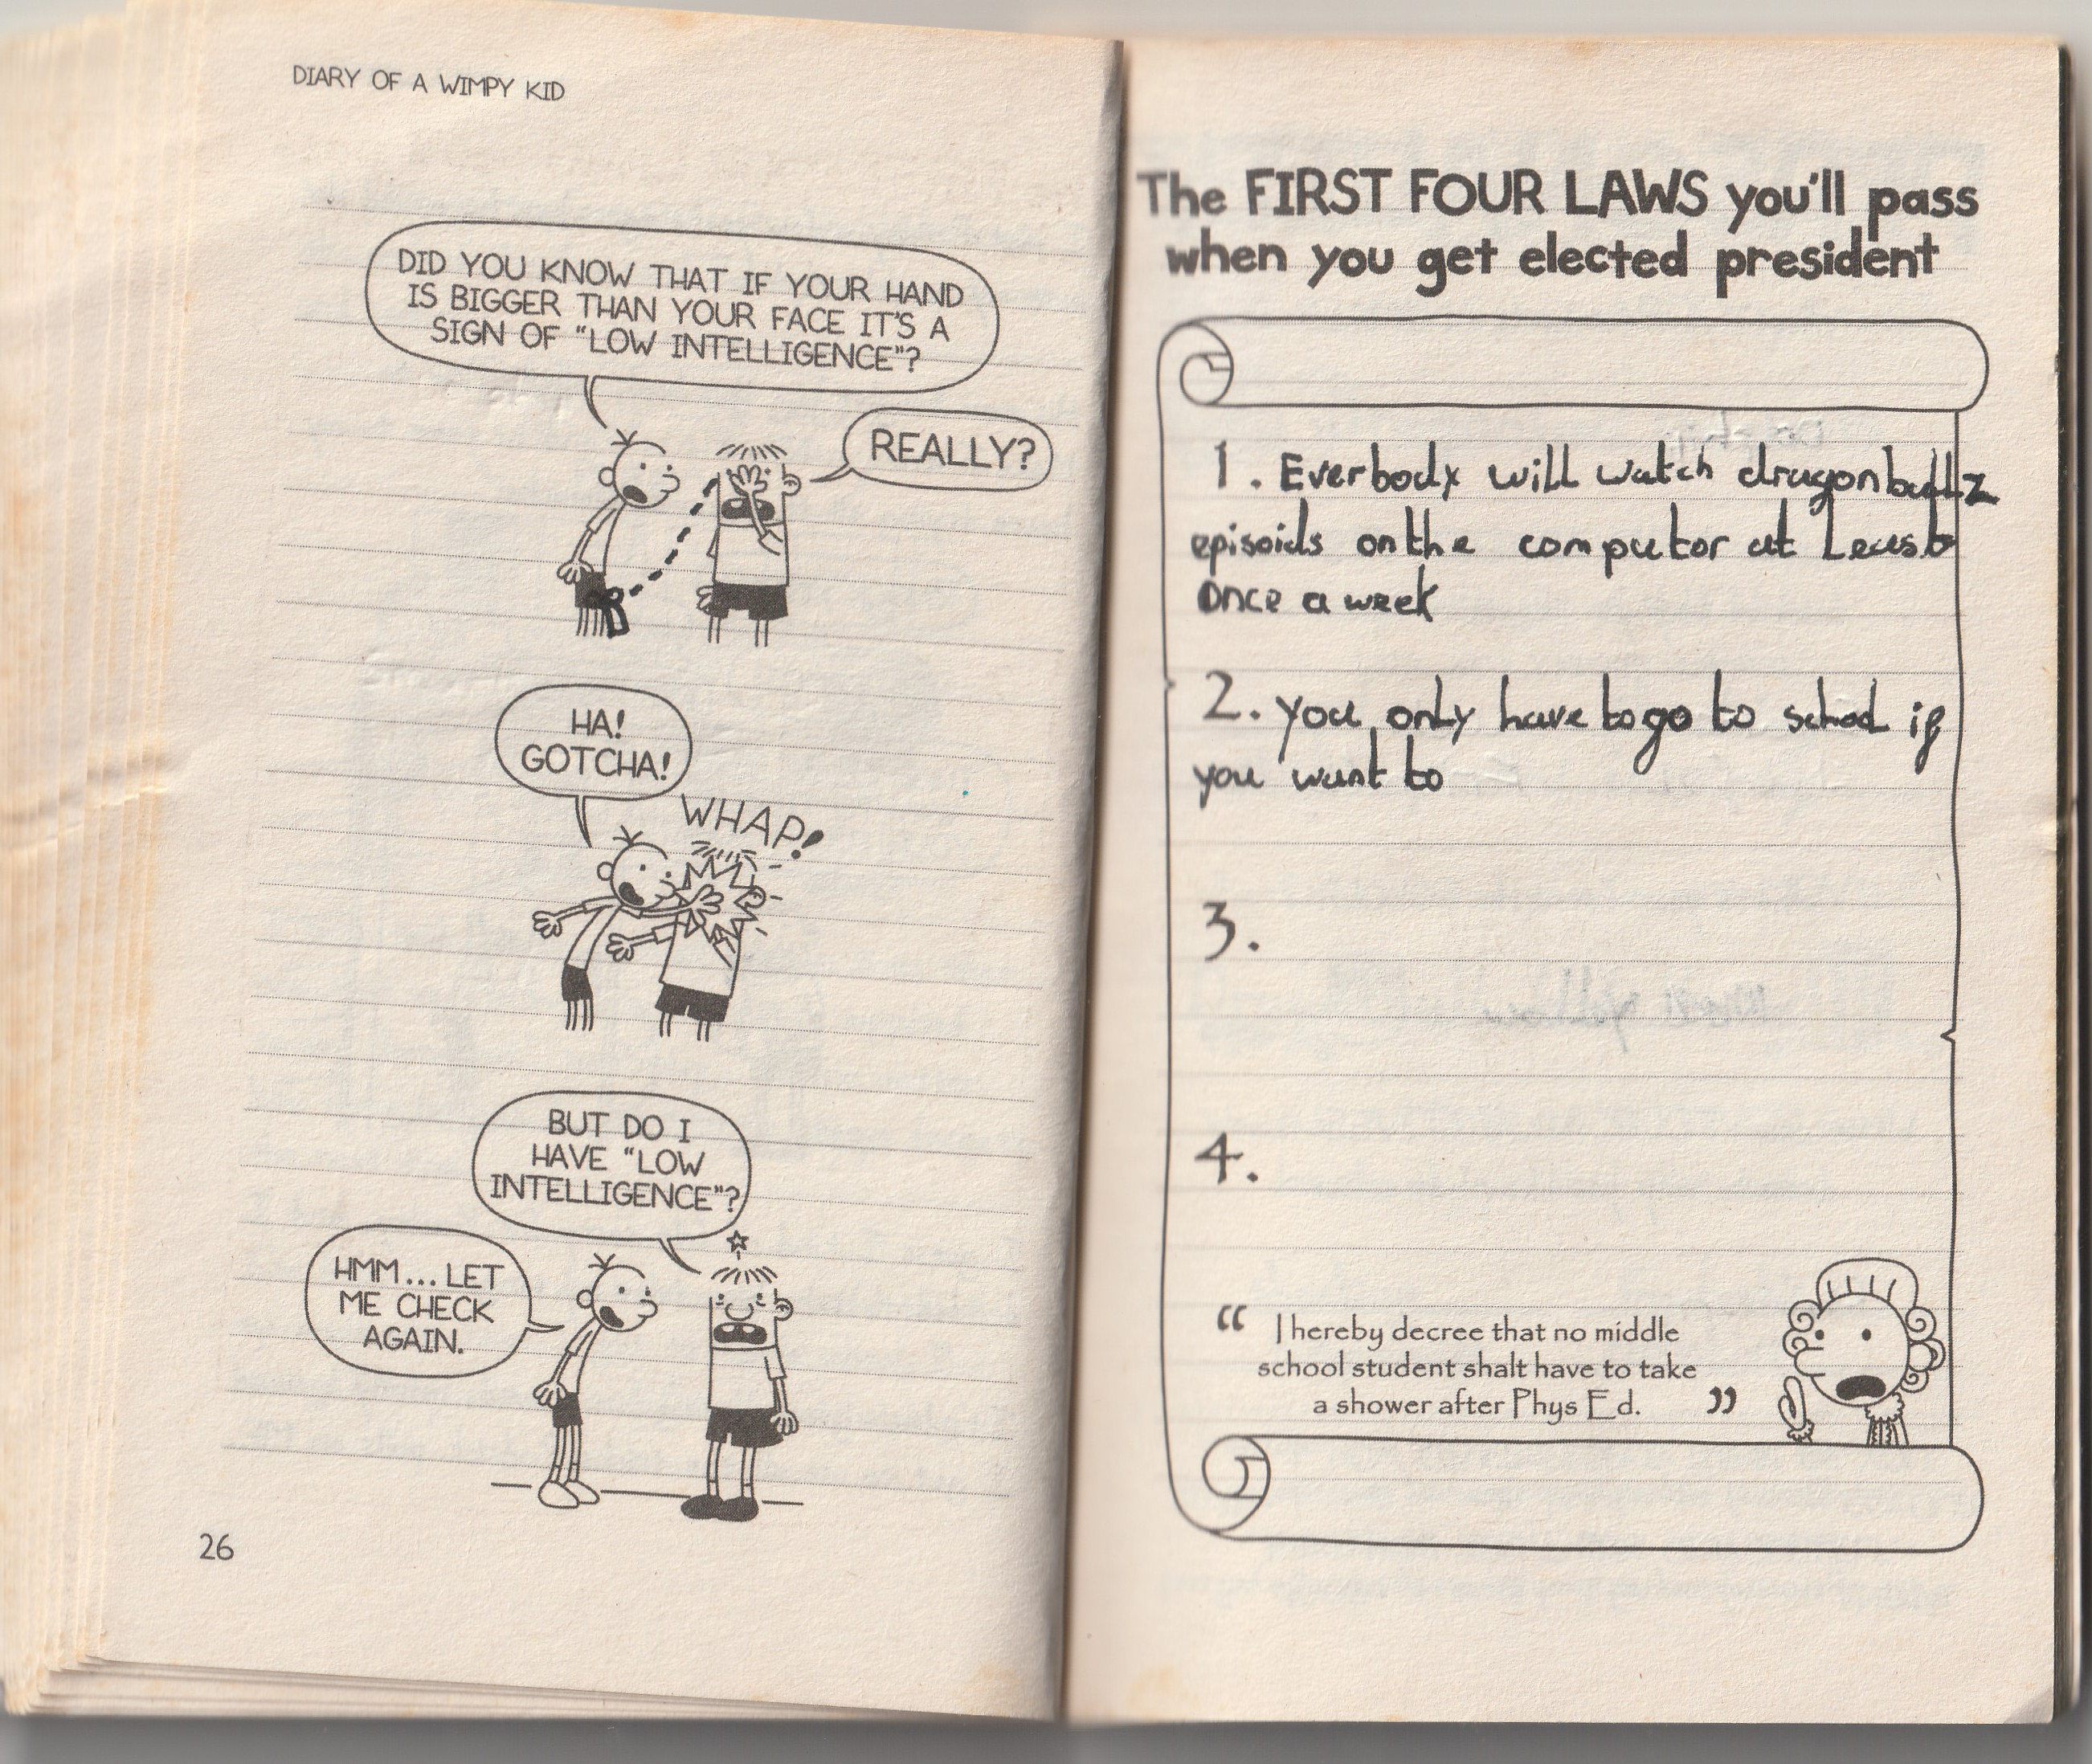 DIARY OF A WIMPY KID
DID YOU KNOW THAT IF YOUR HAND
IS BIGGER THAN YOUR FACE IT'S A
SIGN OF "LOW INTELLIGENCE"?
REALLY?
HA!
GOTCHA!
WHAP!
BUT DO I
HAVE "LOW
INTELLIGENCE"?
HMM... LET
ME CHECK
AGAIN.
26
The FIRST FOUR LAWS you'll pass
when you get elected president
1. Everbody will watch dragonballz
episoids on the computor at Least
Once a week
2. you only have to go to school if
you want to
3.
4.
" I hereby decree that no middle
school student shalt have to take
a shower after Phys Ed. "